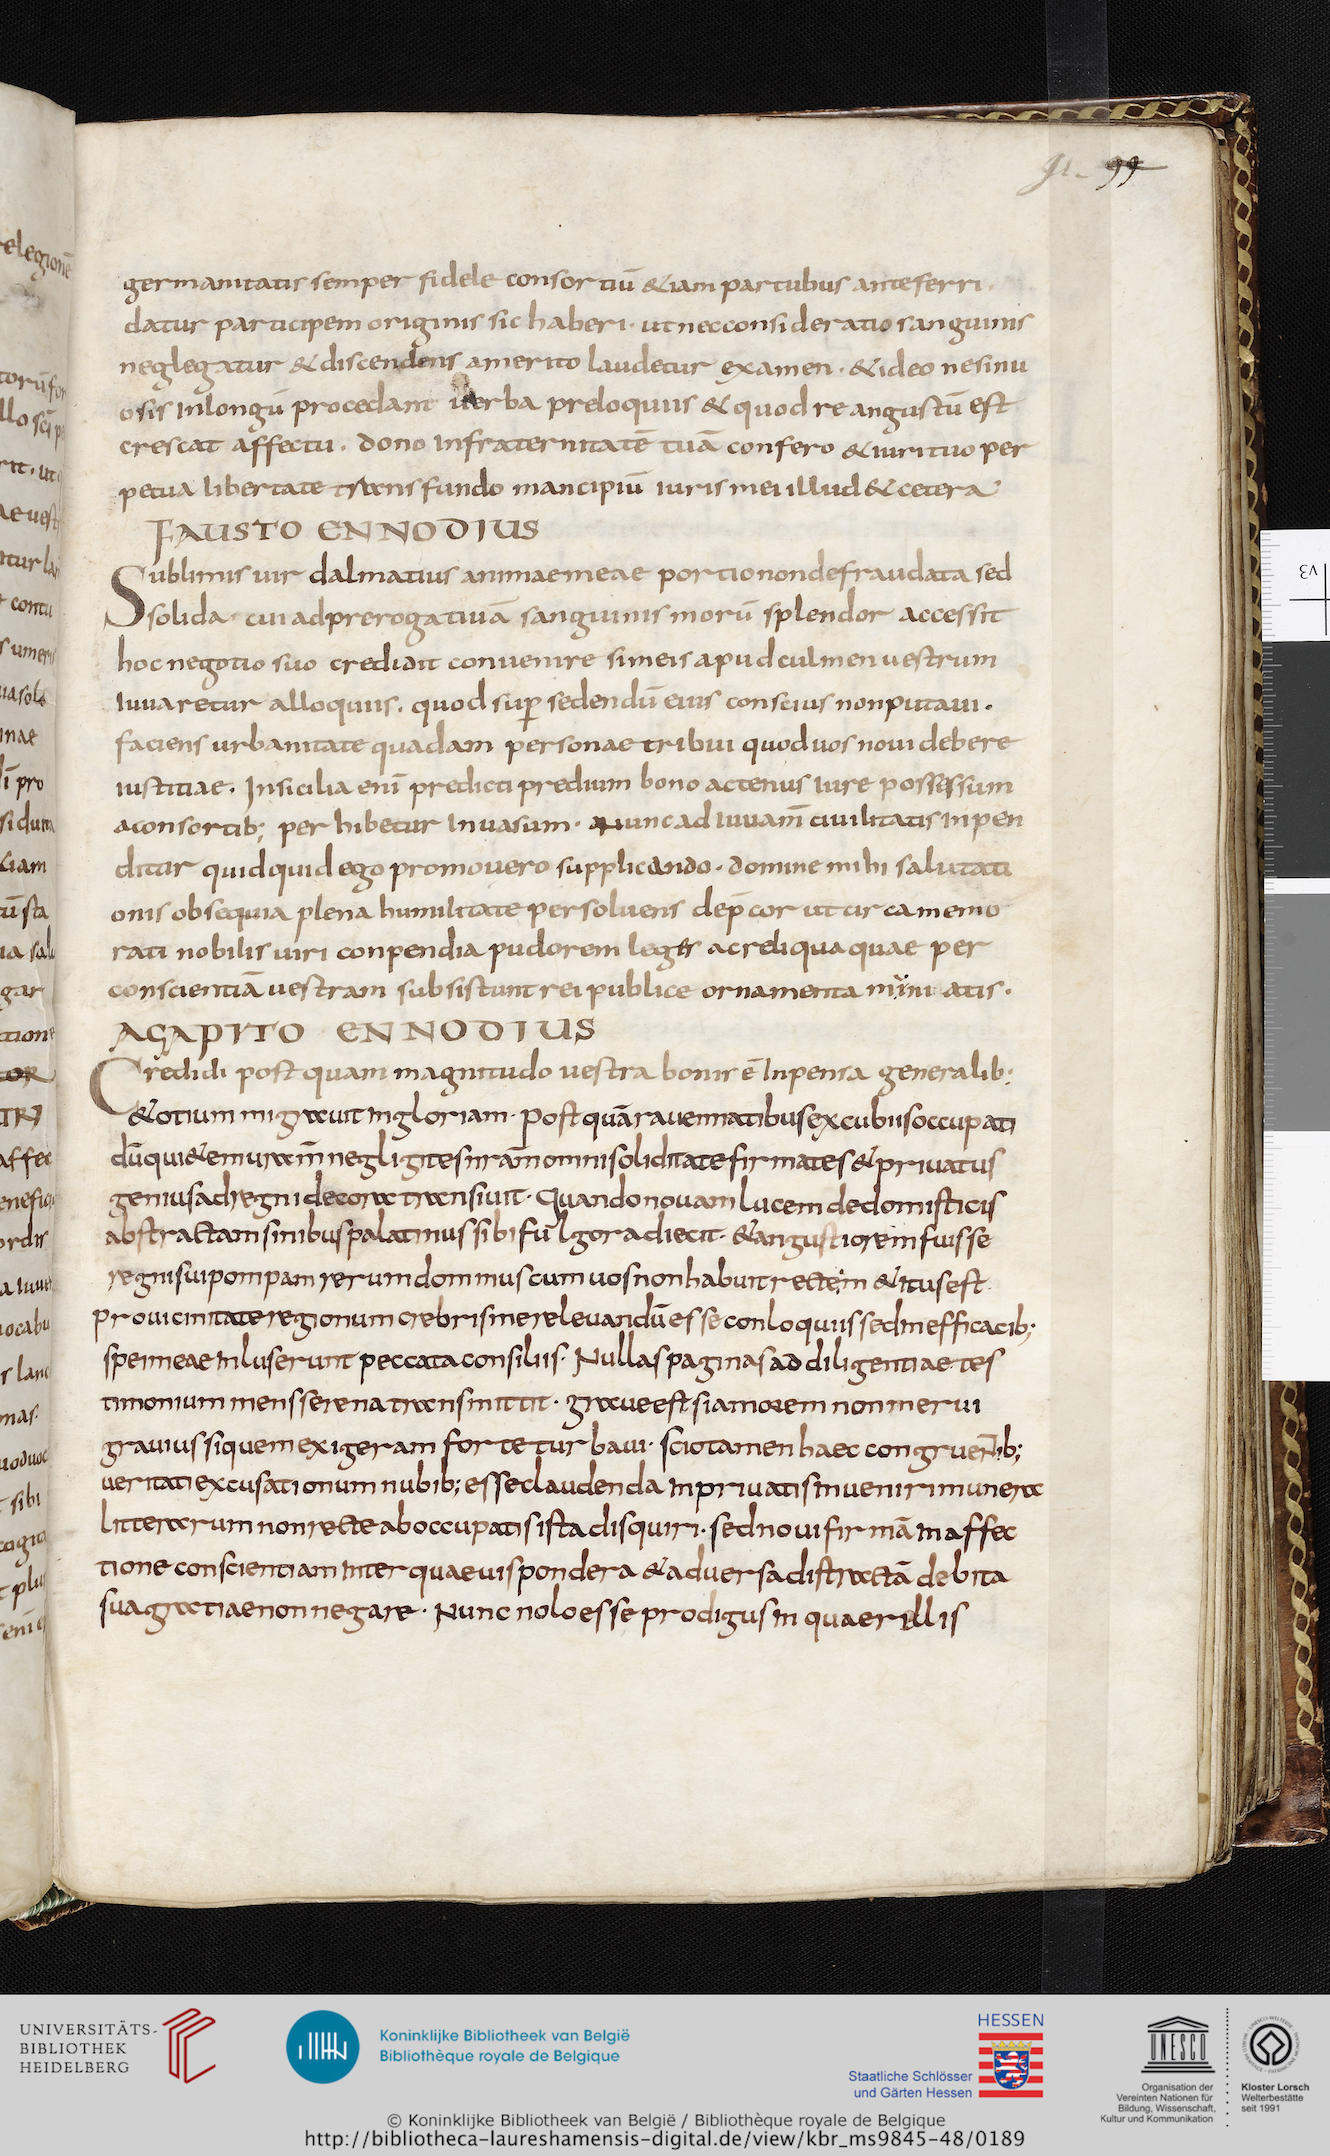 99
germanitatis semper fidele consortiū &iam partubus anteferri·
datur participem originis sic haberi· ut nec consideratio sanguinis
neglegatur & discendens amerito laudetur examen· & ideo nesinu
osis Inlongū procedant uerba preloquiis & quod re angustū est
crescat affectu· dono Infraternitatē tuā confero & iuri tuo per
petua libertate transfundo mancipiū iuris mei illud & cetera
FAUSTO ENNODIUS
Sublimis uir dalmatius animae meae portio non defraudata sed
solida· cui ad prerogatiuā sanguinis morū splendor accessit
hoc negotio suo credidit conuenire si meis apud culmen uestrum
Iuuaretur alloquiis· quod sup sedendū eius conscius non putaui·
faciens urbanitate quadam personae tribui quod uos noui debere
iustitiae· Insicilia enī predicti predium bono actenus Iure possissum
aconsortib; per hibetur Inuasum· Nunc ad Iuuam̄ ciuilitatis Inpen
ditur quidquid ego promouero supplicando· domine mihi salutati
onis obsequia plena humilitate persoluens dep̄cor ut circa memo
rati nobilis uiri conpendia pudorem legis ac reliqua quae per
conscientiā uestram subsistunt rei publice ornamenta
AGAPITO ENNODIUS
Credidi post quam magnitudo uestra bonis ē Inpensa generalib;
& otium migrauit In gloriam· post quā rauennatibus excubiis occupati
geniusad regni decora transiuit· Quando nouam lucem de domisticis
abstractam sinibus palatinus sibi fulgor adiecit· & angustiorem fuisse
regni sui pompam rerum dominus cum uos non habuit rectem & itus est·
pro uicinitate regionum crebris me releuandū esse conloquiis sed inefficacib;
spei meae Inluserunt peccata consiliis· Nullas paginas ad diligentiae tes
timonium mens serena transmittit· graue est si amorem non merui
grauius si quem exigeram forte turbaui· scio tamen haec congruentib;
ueritati excusationum nubib; esse claudenda Inpriuatis Inueniri munera
litterarum non recte ab occupatis ista disquiri· sed noui firmā In affec
tione conscientiam Inter quaeuis pondera & aduersa distractā debita
sua gratiae non negare· Nunc nolo esse prodigus In quaerillis
UNIVERSITÄTS-
BIBLIOTHEK
HEIDELBERG
Koninklijke Bibliotheek van België
Bibliothèque royale de Belgique
HESSEN
Staatliche Schlösser
und Gärten Hessen
UNESCO
Organisation der
Vereinten Nationen für
Bildung, Wissenschaft,
Kultur und Kommunikation
Kloster Lorsch
Welterbestätte
seit 1991
© Koninklijke Bibliotheek van België / Bibliothèque royale de Belgique
http://bibliotheca-laureshamensis-digital.de/view/kbr_ms9845-48/0189